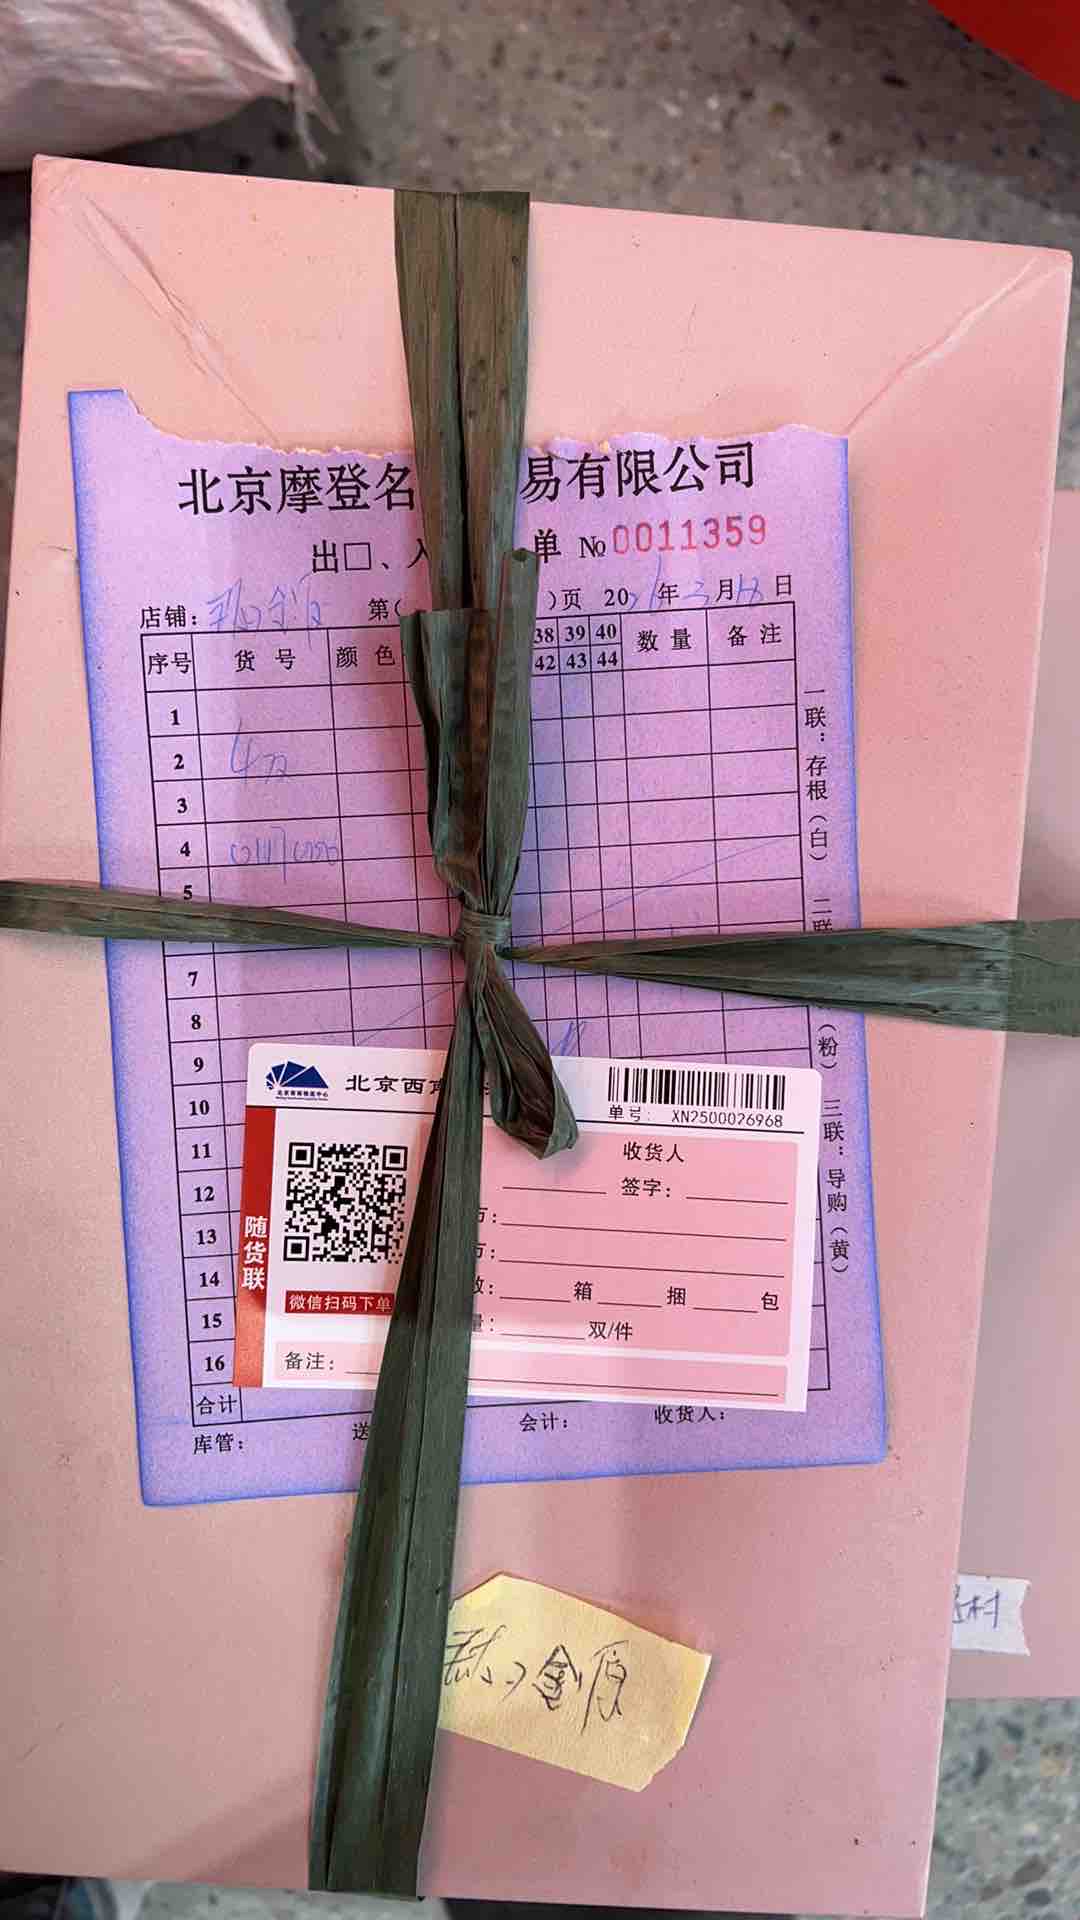 北京摩登名 易有限公司
出口、入 单 № 0011359
店铺: 第( )页 20 年 月 日
序号 货 号 颜 色 38 39 40 数 量 备 注
42 43 44
1
2
3
4
5
7
8
9
10
11
12
13
14
15
16
合计
库管: 送 会计: 收货人:
一联:存根(白) 二联 (粉) 三联:导购(黄)
北京西南物流中心
北京西
单号: XN2500026968
随货联
微信扫码下单
收货人
签字:
市:
市:
数: 箱 捆 包
量: 双/件
备注:
村